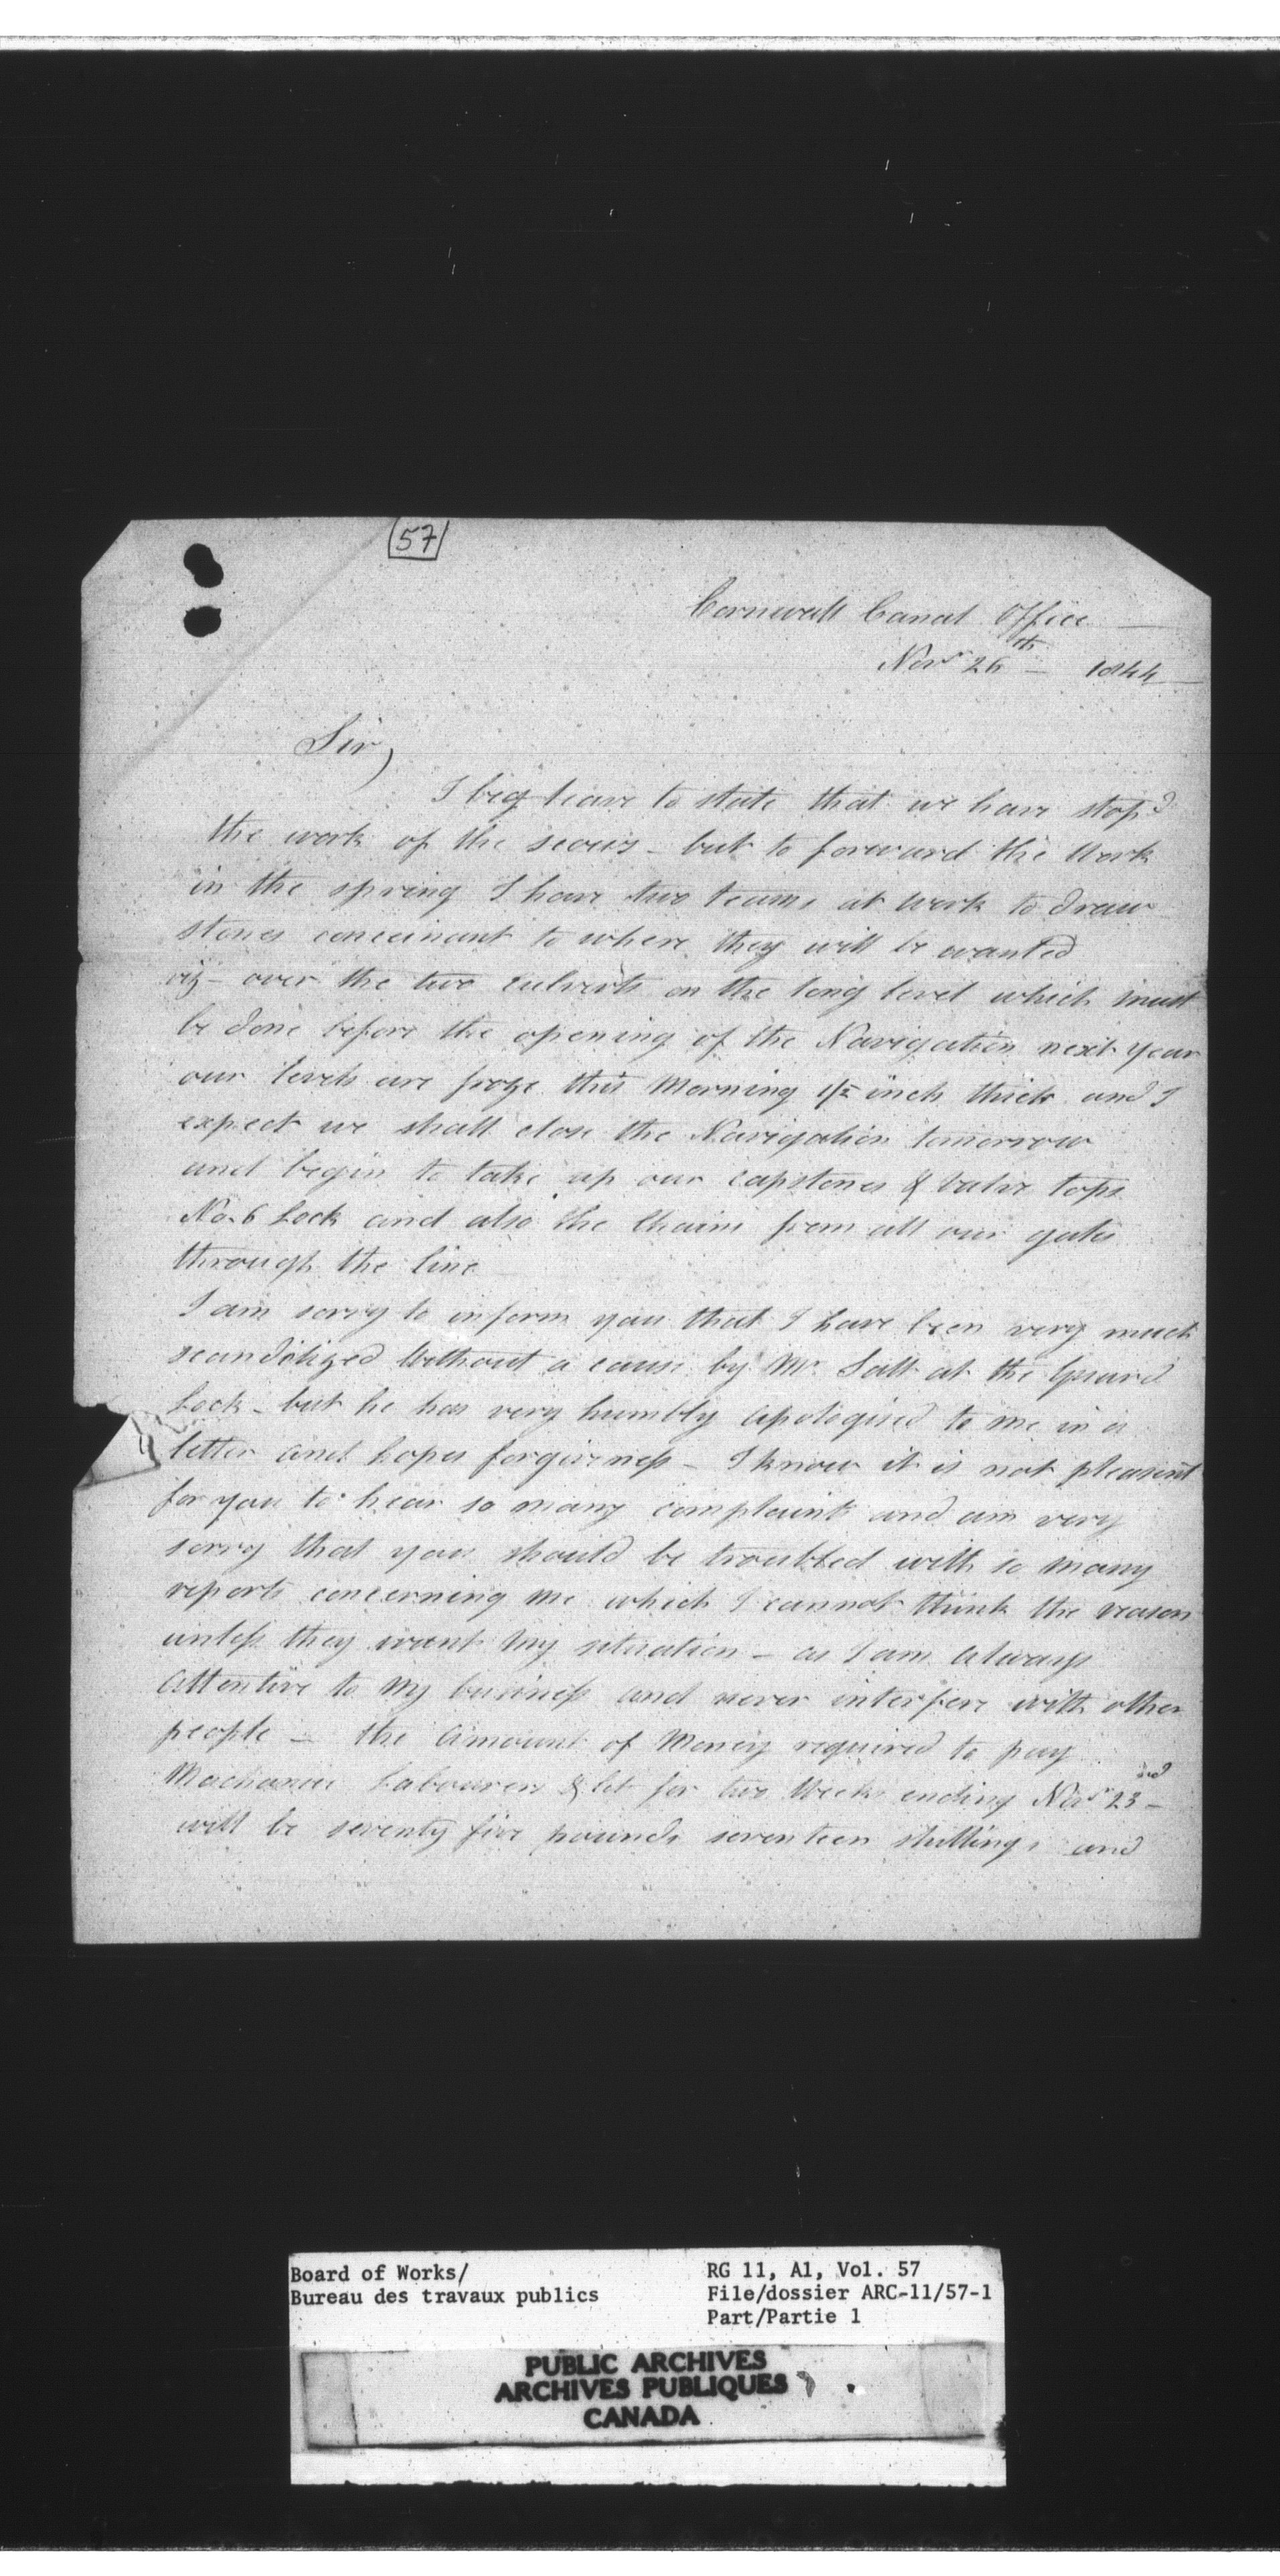 57
Cornwall Canal Office
Novr 26th 1844
Sir,
I beg leave to state that we have stopd
the work of the scows - but to forward the Work
in the spring I have two teams at work to draw
stones conveinant to where they will be wanted
viz - over the two culverts on the long level which must
be done before the opening of the Navigation next year
our levels are froze this Morning 1/2 inch thick and I
expect we shall close the Navigation tomorrow
and begin to take up our capstones & valve tops
No. 6 Lock and also the Chains from all our gates
through the line
I am sorry to inform you that I have been very much
scandilized Without a cause by Mr Salt at the Guard
Lock - but he has very humbly apologised to me in a
letter and hopes forgiveness - I know it is not pleasent
for you to hear so many complaints and am very
sorry that you should be troubled with so many
reports concerning me which I cannot think the reason
unless they want My situation - as I am always
Attentive to My business and never interfere with other
people - the Amount of Money required to pay
Machanics Labourers for two Weeks ending Novr 23rd -
will be seventy five pounds seventeen shillings and
Board of Works/
Bureau des travaux publics
RG 11, A1, Vol. 57
File/dossier ARC-11/57-1
Part/Partie 1
PUBLIC ARCHIVES
ARCHIVES PUBLIQUES
CANADA